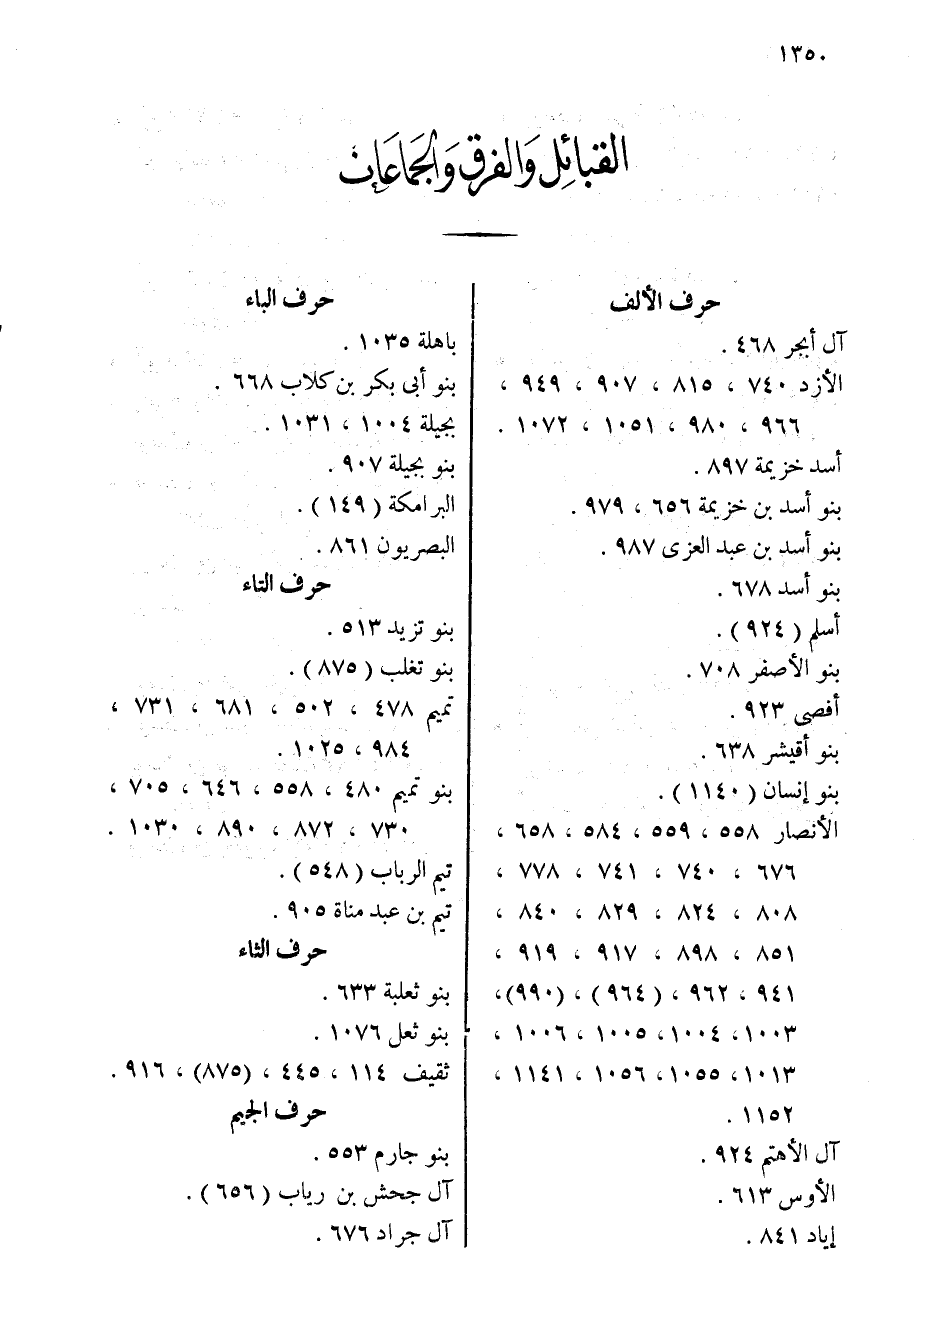 ١٣٥٠
القبائل والفرق والجماعات
حرف الألف
آل أبجر ٤٦٨ .
الأزد ٧٤٠ ، ٨١٥ ، ٩٠٧ ، ٩٤٩ ،
٩٦٦ ، ٩٨٠ ، ١٠٥١ ، ١٠٧٢ .
أسد خزيمة ٨٩٧ .
بنو أسد بن خزيمة ٦٥٦ ، ٩٧٩ .
بنو أسد بن عبد العزى ٩٨٧ .
بنو أسد ٦٧٨ .
أسلم ( ٩٢٤ ) .
بنو الأصفر ٧٠٨ .
أفصى ٩٢٣ .
بنو أقيشر ٦٣٨ .
بنو إنسان ( ١١٤٠ ) .
الأنصار ٥٥٨ ، ٥٥٩ ، ٥٨٤ ، ٦٥٨ ،
٦٧٦ ، ٧٤٠ ، ٧٤١ ، ٧٧٨ ،
٨٠٨ ، ٨٢٤ ، ٨٢٩ ، ٨٤٠ ،
٨٥١ ، ٨٩٨ ، ٩١٧ ، ٩١٩ ،
٩٤١ ، ٩٦٢ ، ( ٩٦٤ ) ، (٩٩٠)،
١٠٠٣ ، ١٠٠٤ ، ١٠٠٥ ، ١٠٠٦ ،
١٠١٣ ، ١٠٥٥ ، ١٠٥٦ ، ١١٤١ ،
١١٥٢ .
آل الأهتم ٩٢٤ .
الأوس ٦١٣ .
إياد ٨٤١ .
حرف الباء
باهلة ١٠٣٥ .
بنو أبى بكر بن كلاب ٦٦٨ .
بجيلة ١٠٠٤ ، ١٠٣١ .
بنو بجيلة ٩٠٧ .
البرامكة ( ١٤٩ ) .
البصريون ٨٦١ .
حرف التاء
بنو تزيد ٥١٣ .
بنو تغلب ( ٨٧٥ ) .
تميم ٤٧٨ ، ٥٠٢ ، ٦٨١ ، ٧٣١ ،
٩٨٤ ، ١٠٢٥ .
بنو تميم ٤٨٠ ، ٥٥٨ ، ٦٤٦ ، ٧٠٥ ،
٧٣٠ ، ٨٧٢ ، ٨٩٠ ، ١٠٣٠ .
تيم الرباب ( ٥٤٨ ) .
تيم بن عبد مناة ٩٠٥ .
حرف الثاء
بنو ثعلبة ٦٣٣ .
بنو ثعل ١٠٧٦ .
ثقيف ١١٤ ، ٤٤٥ ، (٨٧٥) ، ٩١٦ .
حرف الجيم
بنو جارم ٥٥٣ .
آل جحش بن رياب ( ٦٥٦ ) .
آل جراد ٦٧٦ .